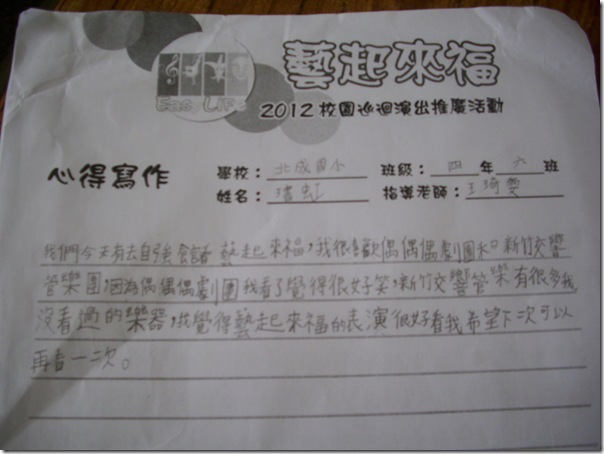 Eas LiFe
藝起來福
2012校園巡迴演出推廣活動
心得寫作
學校：北成國小 班級：四年六班
姓名：虹 指導老師：王琦雯
我們今天有去自強館看藝起來福，我很喜歡偶偶偶劇團和。新竹交響
管樂團，因為偶偶偶劇團我看了覺得很好笑，新竹交響管樂有很多我
沒看過的樂器，我覺得藝起來福的表演很好看我希望下次可以
再看一次。